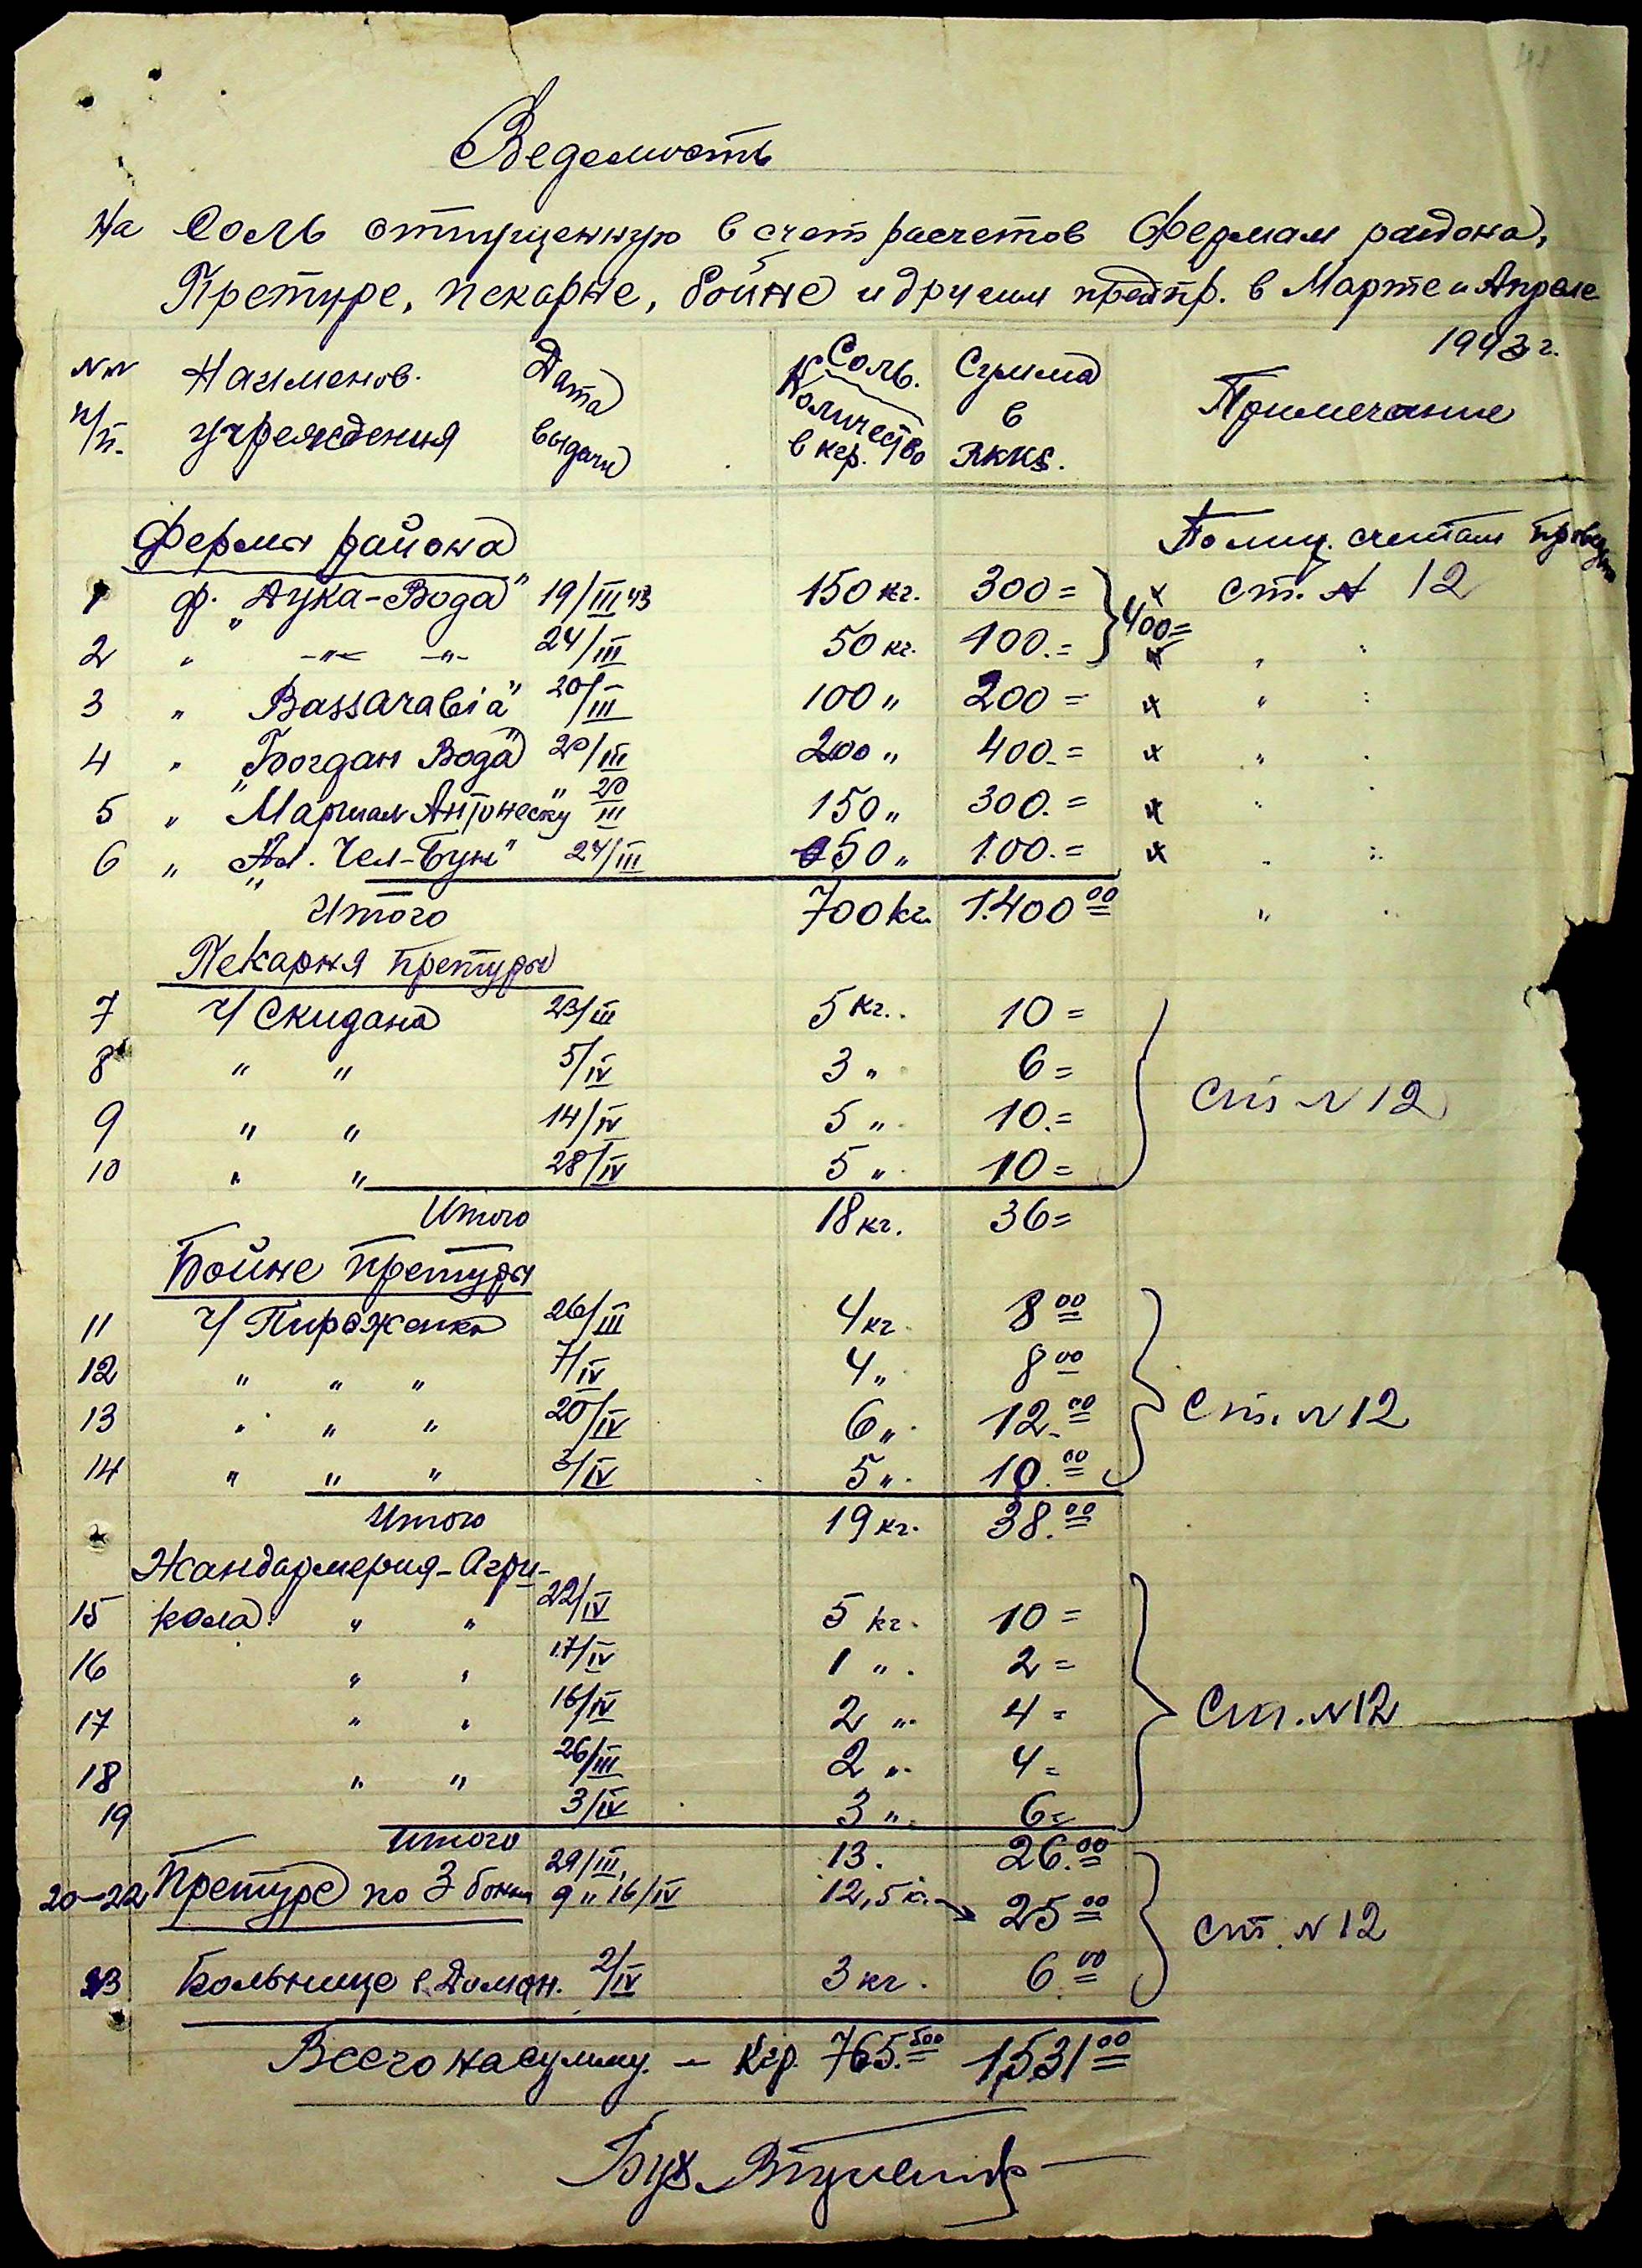 Ведомость
На Соль отпущенную в счет расчетов Фермам района,
Претуре, пекарне, бойне и другим предпр. в Марте и Апреле
1943 г.
№№ п/п. Наименов. учреждения Дата выдачи Соль. Количество в кгр. Сумма в RKKS. Примечание
Ферма района По лиц. счетам
1 ф. „Дука-Вода" 19/III 43 150 кг. 300= х ст. № 12
400=
2 " -"- -"- 24/III 50 кг. 100.= х " "
3 " Bassarabia" 20/III 100 " 200= х " "
4 " „Богдан Вода" 20/III 200 " 400.= х "
5 " „Маршал Антонеску" 20/III 150 " 300.= х "
6 " „Ал. Чел-Бун" 24/III 50 " 100.= х " "
Итого 700 кг. 1.400 00 " "
Пекарня претуры
7 ч/ Скидана 23/III 5 кг. 10=
8 " " 5/IV 3 " 6=
9 " " 14/IV 5 " 10.= Ст № 12
10 " " 28/IV 5 " 10=
Итого 18 кг. 36=
Бойне претуры
11 ч/ Пироженко 26/III 4 кг 8 00
12 " " " 7/IV 4 " 8 00
13 " " " 20/IV 6 " 12. 00 Ст. № 12
14 " " " 3/IV 5 " 10. 00
Итого 19 кг. 38. 00
Жандармерия-Агри-
15 кола " " 22/IV 5 кг. 10=
16 " " 17/IV 1 " 2=
17 " " 16/IV 2 " 4= Ст. № 12
18 " " 26/III 2 " 4=
19 3/IV 3 " 6=
Итого 13. 26. 00
20-22 Претуре по 3 бонам 29/III, 9 и 16/IV 12,5 к. 25 00 Ст. № 12
23 Больнице в Доман. 2/IV 3 кг. 6. 00
Всего на сумму. - Кгр. 765. 500 1,531 00
Бух.